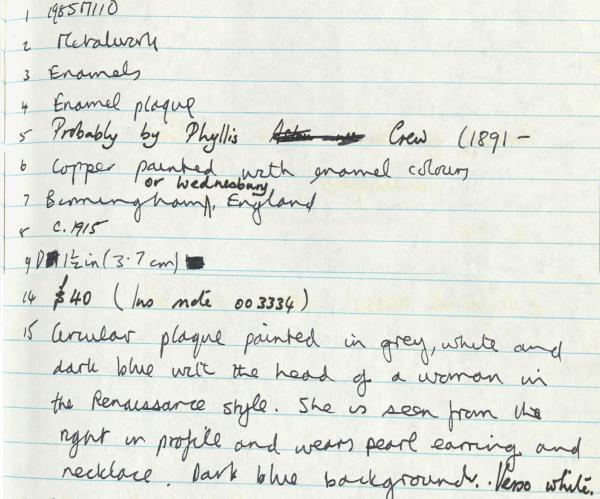 1 1985M110
2 Metalwork
3 Enamels
4 Enamel plaque
5 Probably by Phyllis Crew (1891 -
6 Copper painted with enamel colours
or Wednesbury
7 Birmingham, England
8 c. 1915
9 D 1½ in (3.7 cm)
14 £40 (Ins note 003334)
15 Circular plaque painted in grey, white and
dark blue with the head of a woman in
the Renaissance style. She is seen from the
right in profile and wears pearl earring and
necklace. Dark blue background. Verso white.